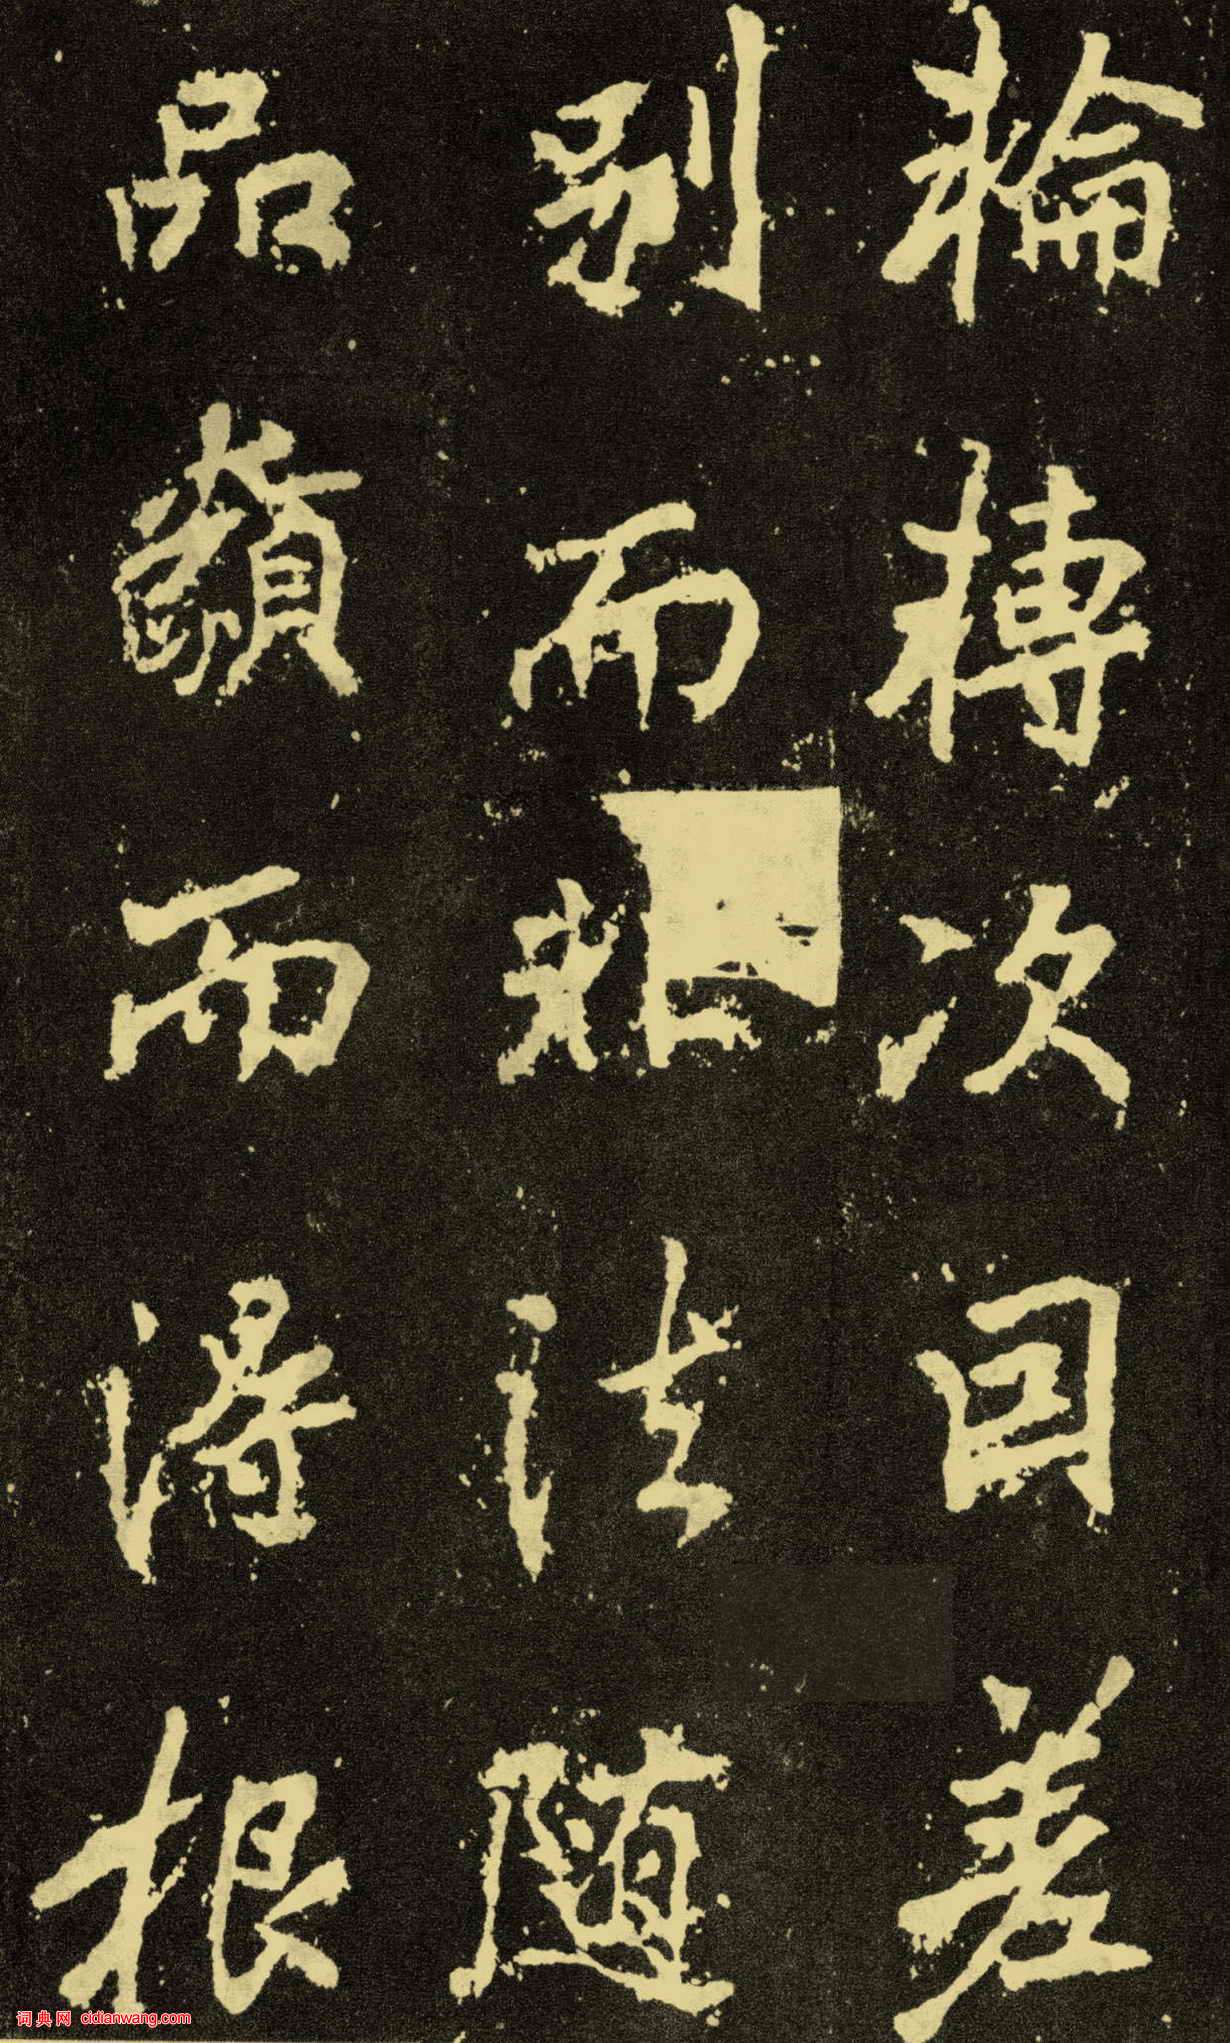 輪轉次因差
別而法隨
品類而得根
词典网 cidianwang.com